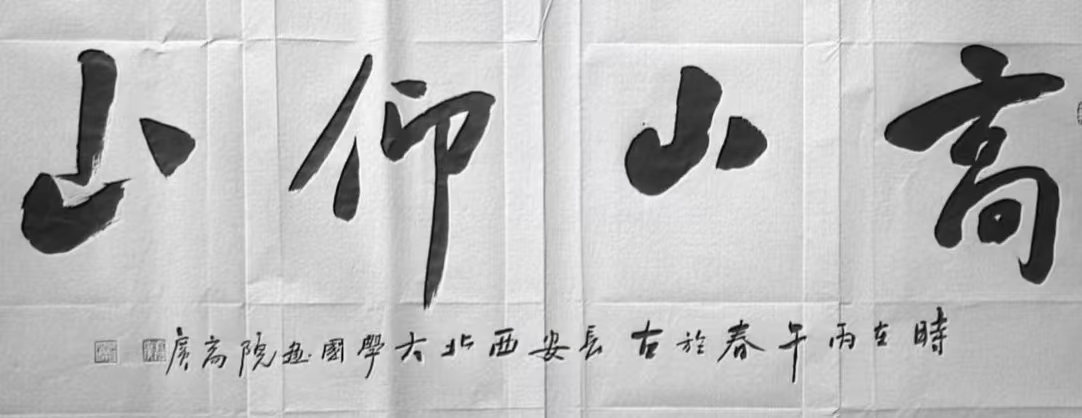 高山仰止
時在丙午春於古長安西北大學國畫院高廣